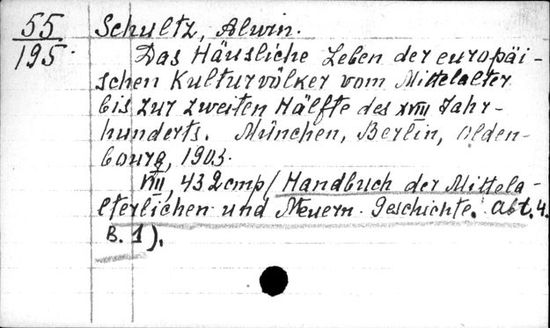 55
195.
Schultz, Alwin.
Das Häusliche Leben der europäi-
schen Kulturvölker vom Mittelalter
bis zur zweiten Hälfte des XVIII Jahr-
hunderts. München, Berlin, Olden-
bourg, 1903.
VIII, 432 стр/Handbuch der Mittela-
lterlichen und Neuern Geschichte. Abt. 4.
B. 1).